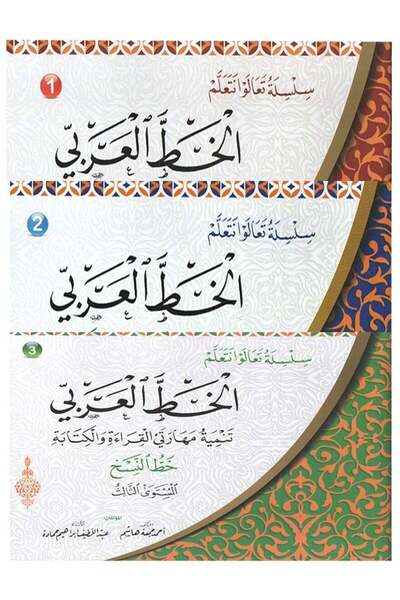 1
سِلْسِلَةُ تَعَالَوْا نَتَعَلَّمْ
الخَطَّ العَرَبِيّ
2
سِلْسِلَةُ تَعَالَوْا نَتَعَلَّمْ
الخَطَّ العَرَبِيّ
3
سِلْسِلَةُ تَعَالَوْا نَتَعَلَّمْ
الخَطَّ العَرَبِيّ
تَنْمِيَةُ مَهَارَتَيِ القِرَاءَةِ وَالكِتَابَةِ
خَطُّ النَّسْخِ
المُسْتَوَى الثَّالِثُ
أحمد جمعة هاشم عبد اللطيف إبراهيم حمادة